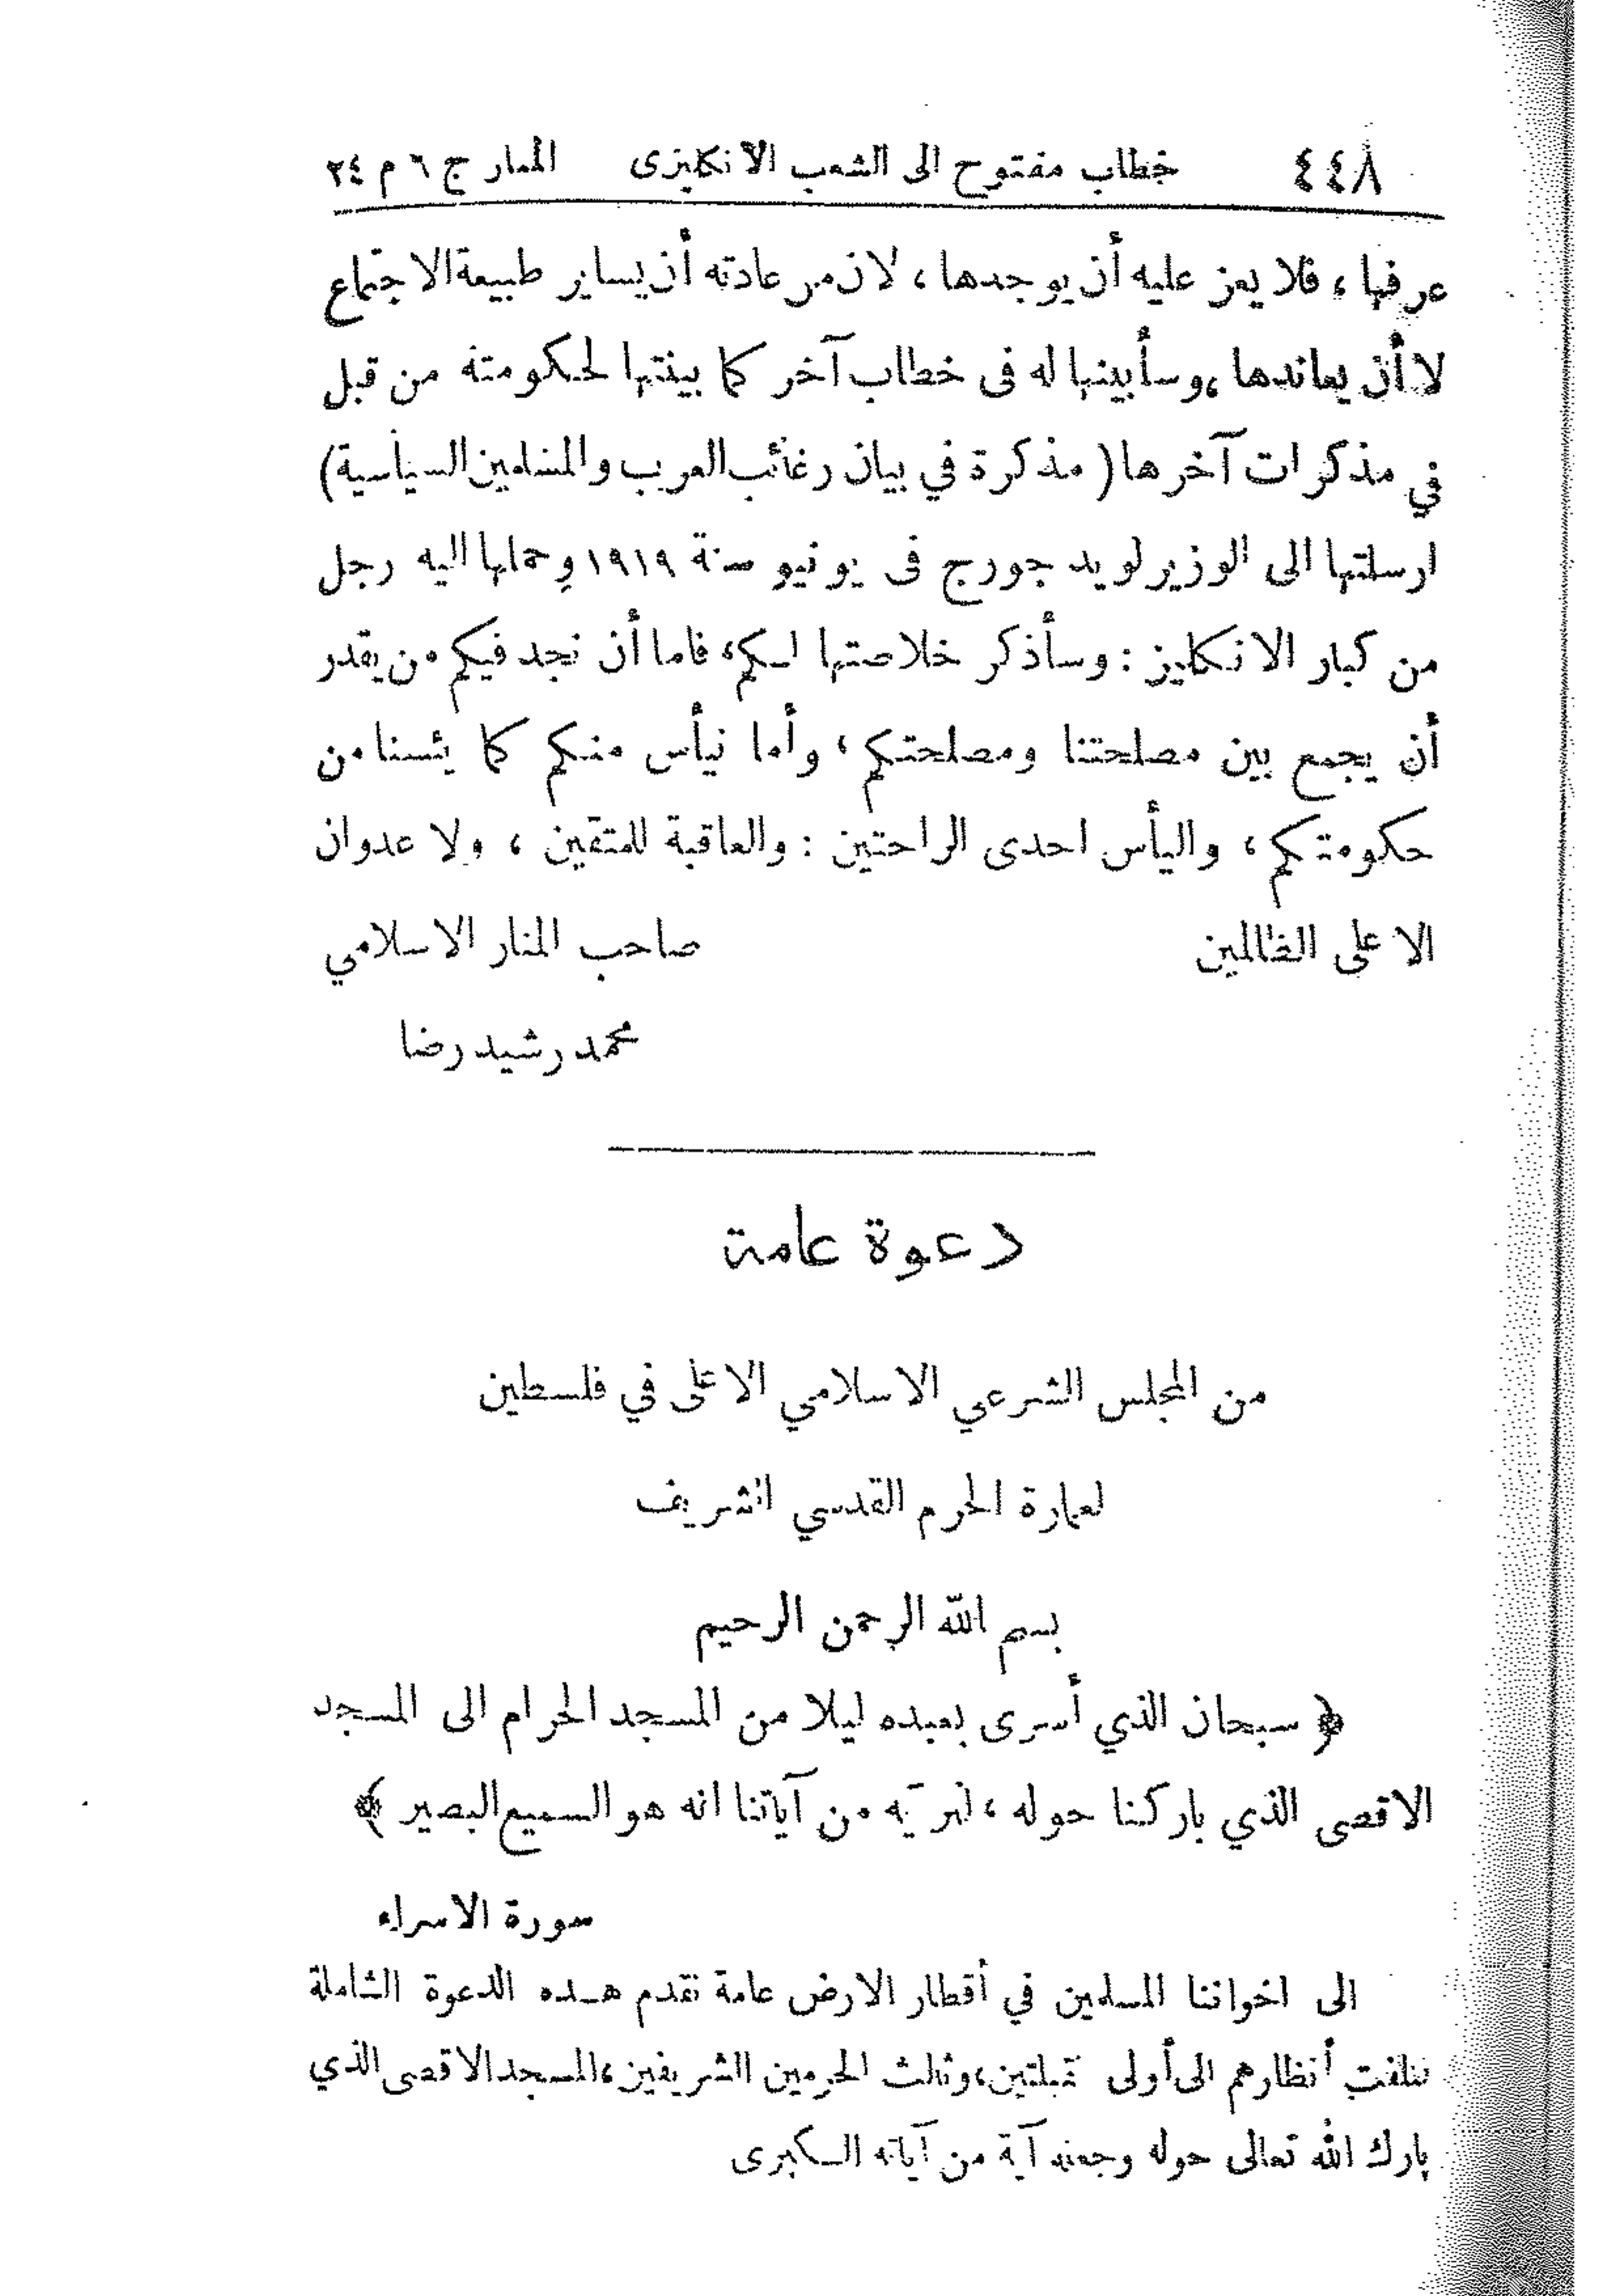 ٤٤٨ خطاب مفتوح الى الشعب الانكليزى المنار ج ٦ م ٢٤
عرفها، فلا يعز عليه أن يوجدها، لان من عادته أن يساير طبيعة الاجتماع
لا أن يعاندها، وسأبينها له فى خطاب آخر كما بينتها لحكومته من قبل
في مذكرات آخرها ( مذكرة في بيان رغائب العرب والمسلمين السياسية)
ارسلتها الى الوزير لويد جورج فى يونيو سنة ١٩١٩ وحملها اليه رجل
من كبار الانكليز : وسأذكر خلاصتها لكم، فاما أن نجد فيكم من يقدر
أن يجمع بين مصلحتنا ومصلحتكم، وأما نيأس منكم كما يئسنا من
حكومتكم، واليأس احدى الراحتين : والعاقبة للمتقين، ولا عدوان
الا على الظالمين صاحب المنار الاسلامي
محمد رشيد رضا
دعوة عامة
من المجلس الشرعي الاسلامي الاعلى في فلسطين
لعمارة الحرم القدسي الشريف
بسم الله الرحمن الرحيم
﴿ سبحان الذي أسرى بعبده ليلا من المسجد الحرام الى المسجد
الاقصى الذي باركنا حوله، لنريه من آياتنا انه هو السميع البصير ﴾
سورة الاسراء
الى اخواننا المسلمين في أقطار الارض عامة نقدم هـذه الدعوة الشاملة
نلفت أنظارهم الى أولى قبلتين، وثالث الحرمين الشريفين، المسجد الاقصى الذي
بارك الله تعالى حوله وجعله آية من آياته الكبرى